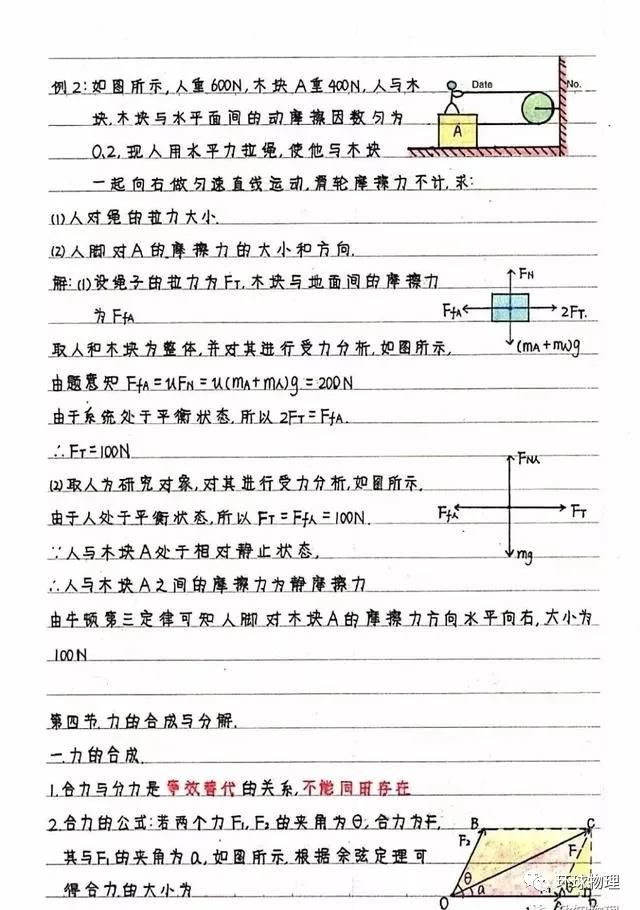 例2:如图所示,人重600N,木块A重400N,人与木
Date
No.
A
块.木块与水平面间的动摩擦因数匀为
0.2,现人用水平力拉绳,使他与木块
一起向右做匀速直线运动,滑轮摩擦力不计,求:
(1)人对绳的拉力大小.
(2)人脚对A的摩擦力的大小和方向.
解:(1)设绳子的拉力为FT,木块与地面间的摩擦力
为FfA
FN
FfA
2FT.
(mA+m人)g
取人和木块为整体,并对其进行受力分析,如图所示,
由题意知FfA=uFN=u(mA+m人)g=200N
由于系统处于平衡状态.所以2FT=FfA.
∴FT=100N
(2)取人为研究对象,对其进行受力分析,如图所示.
FN人
Ff人
FT
mg
由于人处于平衡状态,所以FT=Ff人=100N.
∵人与木块A处于相对静止状态,
∴人与木块A之间的摩擦力为静摩擦力
由牛顿第三定律可知人脚对木块A的摩擦力方向水平向右,大小为
100N
第四节.力的合成与分解.
一.力的合成.
1.合力与分力是等效替代的关系,不能同时存在
2.合力的公式:若两个力F1,F2的夹角为θ,合力为F,
其与F1的夹角为α,如图所示.根据余弦定理可
得合力的大小为
B
C
F2
F
θ
α
O
D
环球物理